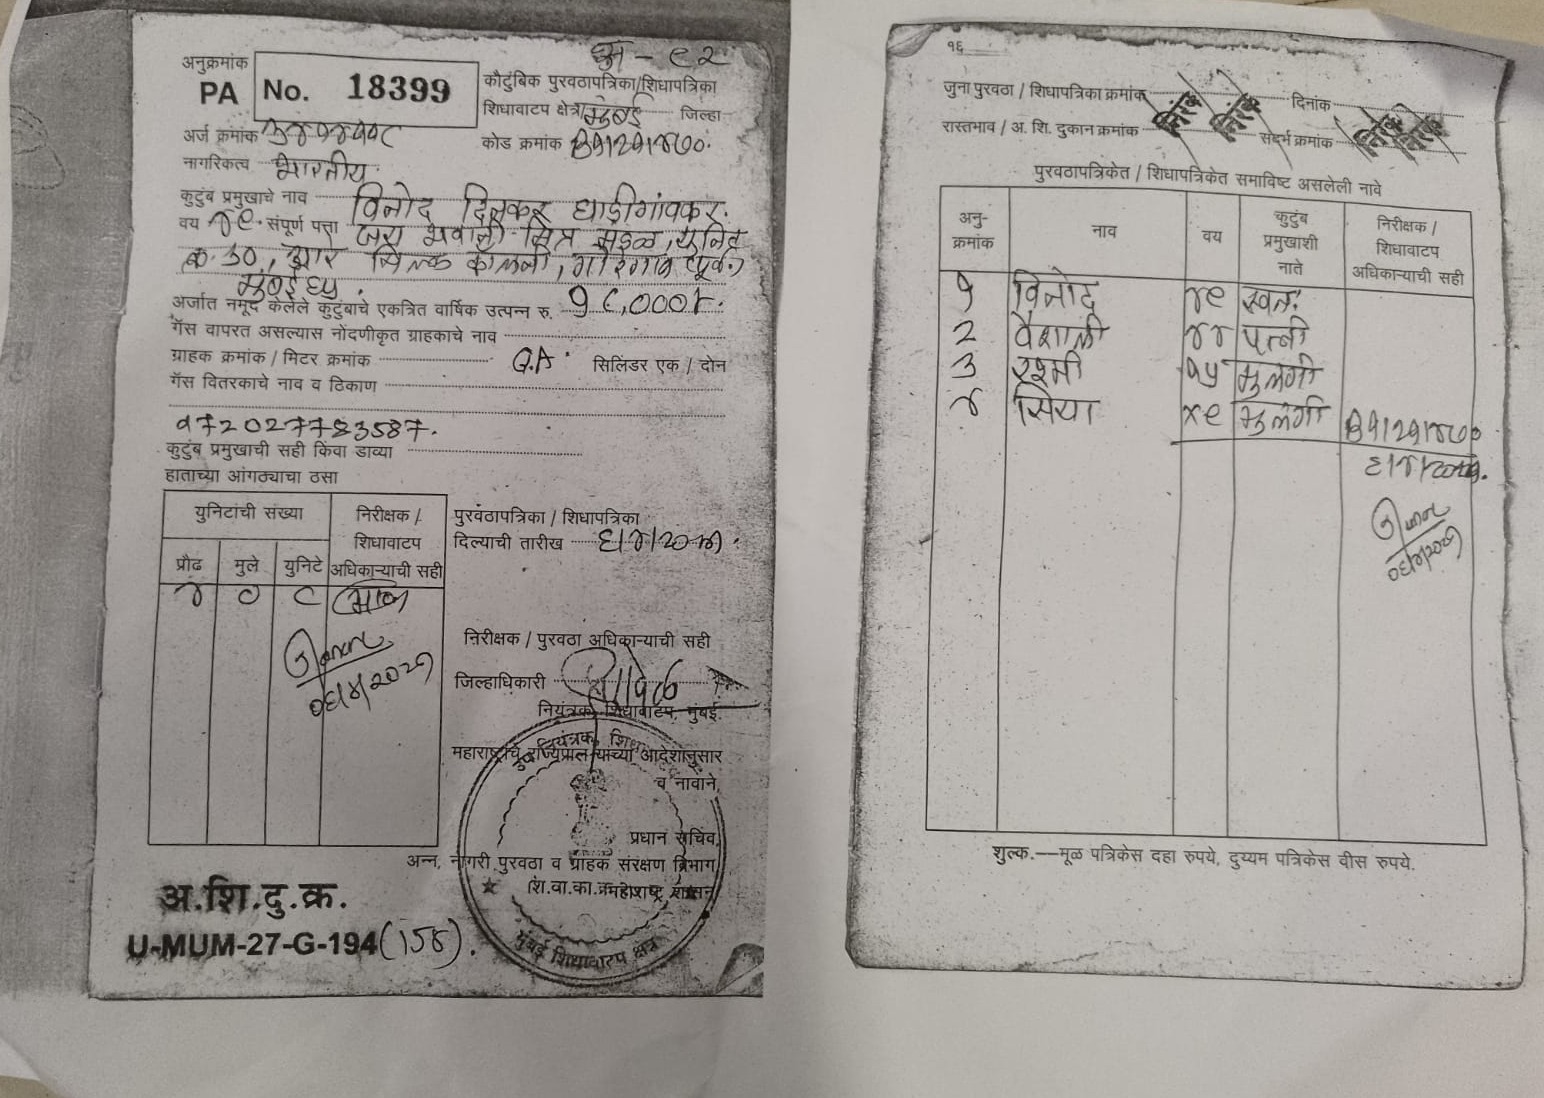 घुम - ९२
अनुक्रमांक
PA No. 18399
कौटुंबिक पुरवठापत्रिका/शिधापत्रिका
शिधावाटप क्षेत्र मुंबई जिल्हा
अर्ज क्रमांक
कोड क्रमांक
नागरिकत्व भारतीय.
कुटुंब प्रमुखाचे नाव विनोद दिनकर घाडीगांवकर.
वय ४९. संपूर्ण पत्ता जय भवानी मित्र मंडळ, युनिट
क्र. 30, आरे मिल्क कॉलनी, गोरेगाव (पूर्व)
मुंबई ६५.
अर्जात नमूद केलेले कुटुंबाचे एकत्रित वार्षिक उत्पन्न रु. ९८,०००/-.
गॅस वापरत असल्यास नोंदणीकृत ग्राहकाचे नाव
ग्राहक क्रमांक / मिटर क्रमांक सिलिंडर एक / दोन
गॅस वितरकाचे नाव व ठिकाण
कुटुंब प्रमुखाची सही किंवा डाव्या
हाताच्या आंगठ्याचा ठसा
युनिटांची संख्या निरीक्षक / शिधावाटप अधिकाऱ्याची सही
प्रौढ मुले युनिटे
४ ० ८
पुरवठापत्रिका / शिधापत्रिका
दिल्याची तारीख
निरीक्षक / पुरवठा अधिकाऱ्याची सही
जिल्हाधिकारी
नियंत्रक शिधावाटप, मुंबई
महाराष्ट्राचे राज्यपाल यांच्या आदेशानुसार
व नावाने,
प्रधान सचिव,
अन्न, नागरी पुरवठा व ग्राहक संरक्षण विभाग
महाराष्ट्र शासन
मुंबई शिधावाटप क्षेत्र
अ.शि.दु.क्र.
U-MUM-27-G-194 (158).
१६
जुना पुरवठा / शिधापत्रिका क्रमांक निरंक निरंक दिनांक
रास्तभाव / अ. शि. दुकान क्रमांक संदर्भ क्रमांक निरंक निरंक
पुरवठापत्रिकेत / शिधापत्रिकेत समाविष्ट असलेली नावे
अनु-क्रमांक नाव वय कुटुंब प्रमुखाशी नाते निरीक्षक / शिधावाटप अधिकाऱ्याची सही
१ विनोद ४९ स्वतः
२ वैशाली ४४ पत्नी
३ रश्मी १५ मुलगी
४ सिया मुलगी
शुल्क.—मूळ पत्रिकेस दहा रुपये, दुय्यम पत्रिकेस वीस रुपये.